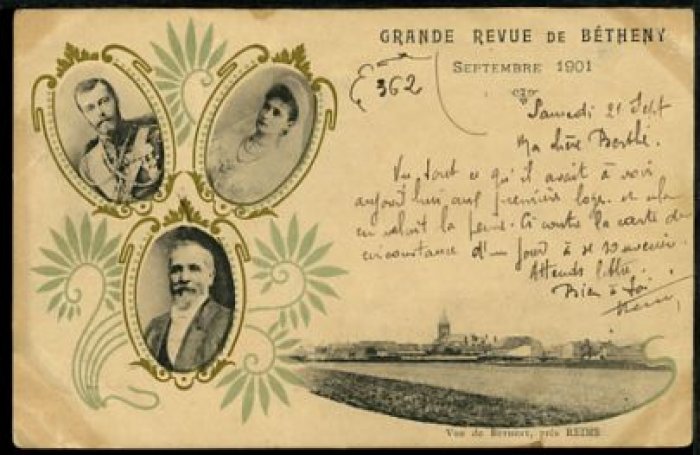 GRANDE REVUE DE BÉTHENY
SEPTEMBRE 1901
362
Samedi 21 Sept
Ma chère Berthe.
Vu tout ce qu'il avait à voir
aujourd'hui, aux premières loges et cela
en valait la peine. Ci contre la carte de
circonstance d'un jour à se souvenir.
Attends lettre.
Bien à toi
Vue de BETHENY, près REIMS